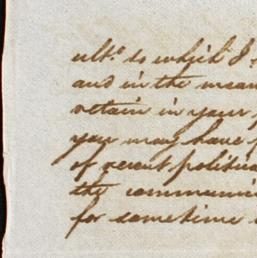 ulto. to which I
and in the mean
retain in your
you may have
of recent politica
the communic
for some time